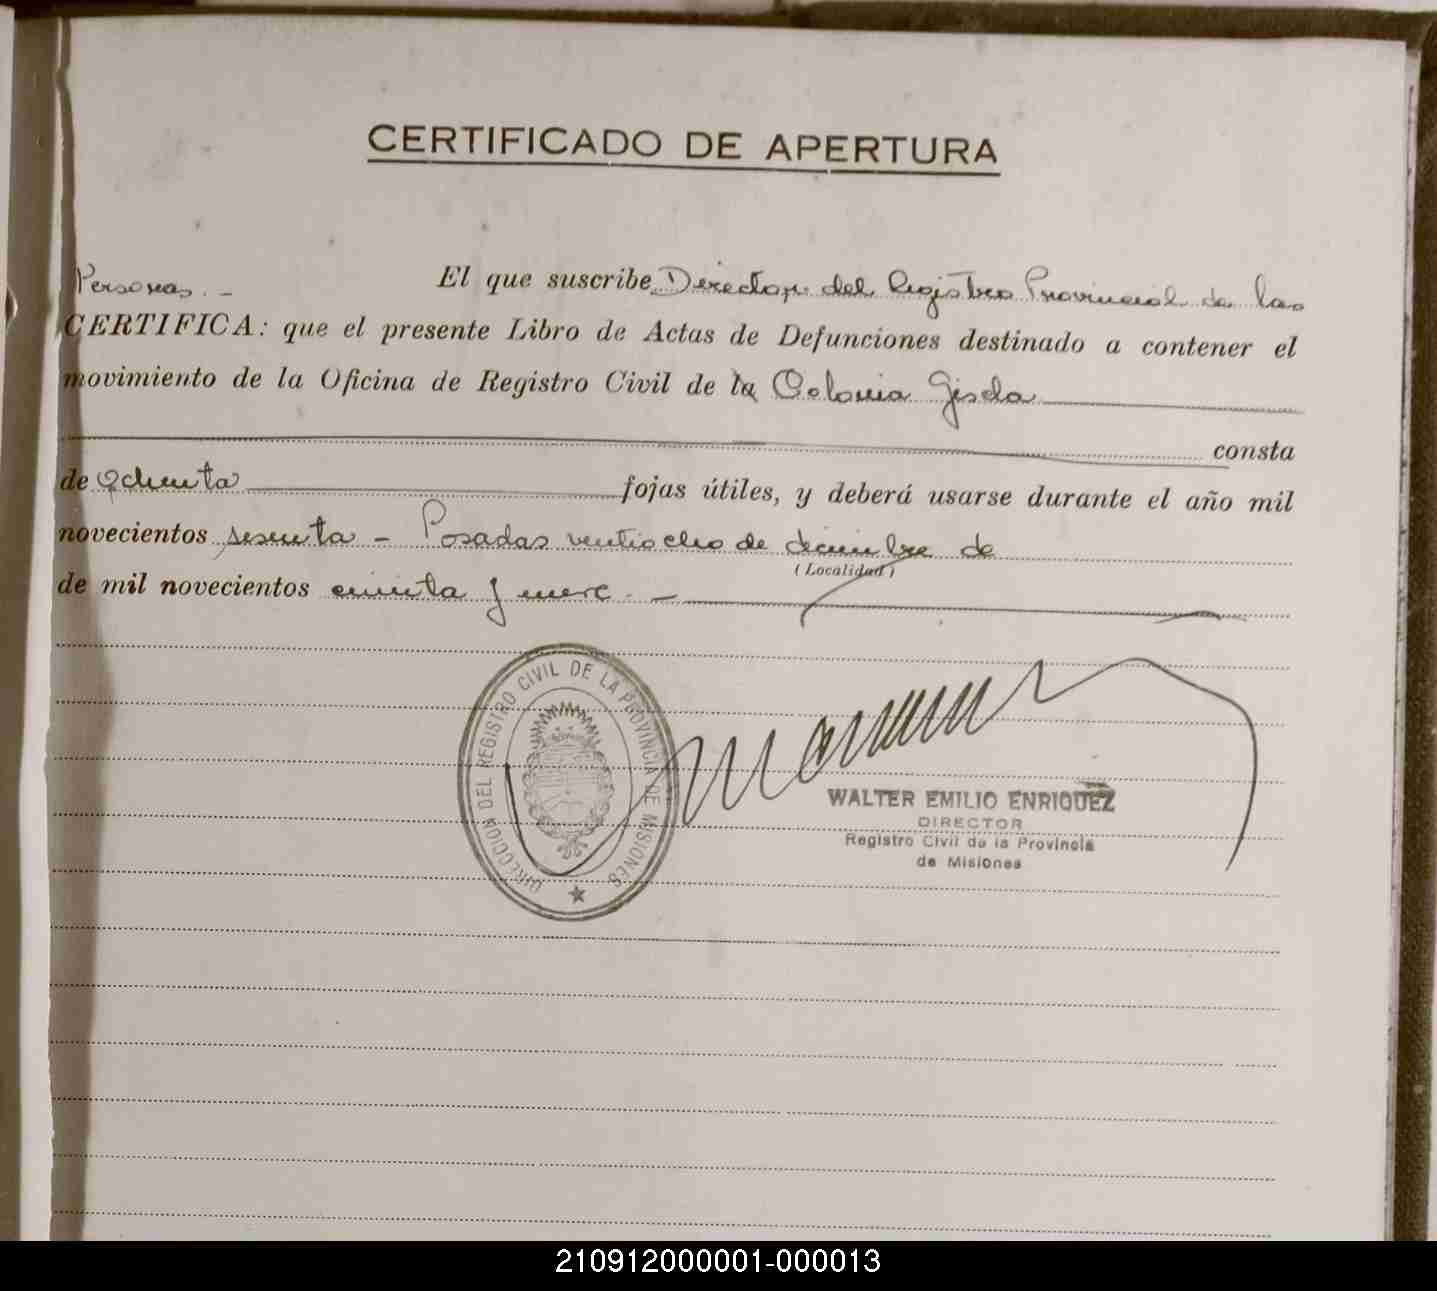 CERTIFICADO DE APERTURA
El que suscribe Director del Registro Provincial de las
Personas. -
CERTIFICA: que el presente Libro de Actas de Defunciones destinado a contener el
movimiento de la Oficina de Registro Civil de la Colonia Gisela
consta
de Ochenta fojas útiles, y deberá usarse durante el año mil
novecientos sesenta - Posadas ventiocho de diciembre de
(Localidad)
de mil novecientos cincuenta y nueve. -
DIRECCION DEL REGISTRO CIVIL DE LA PROVINCIA DE MISIONES
WALTER EMILIO ENRIQUEZ
DIRECTOR
Registro Civil de la Provincia
de Misiones
210912000001-000013